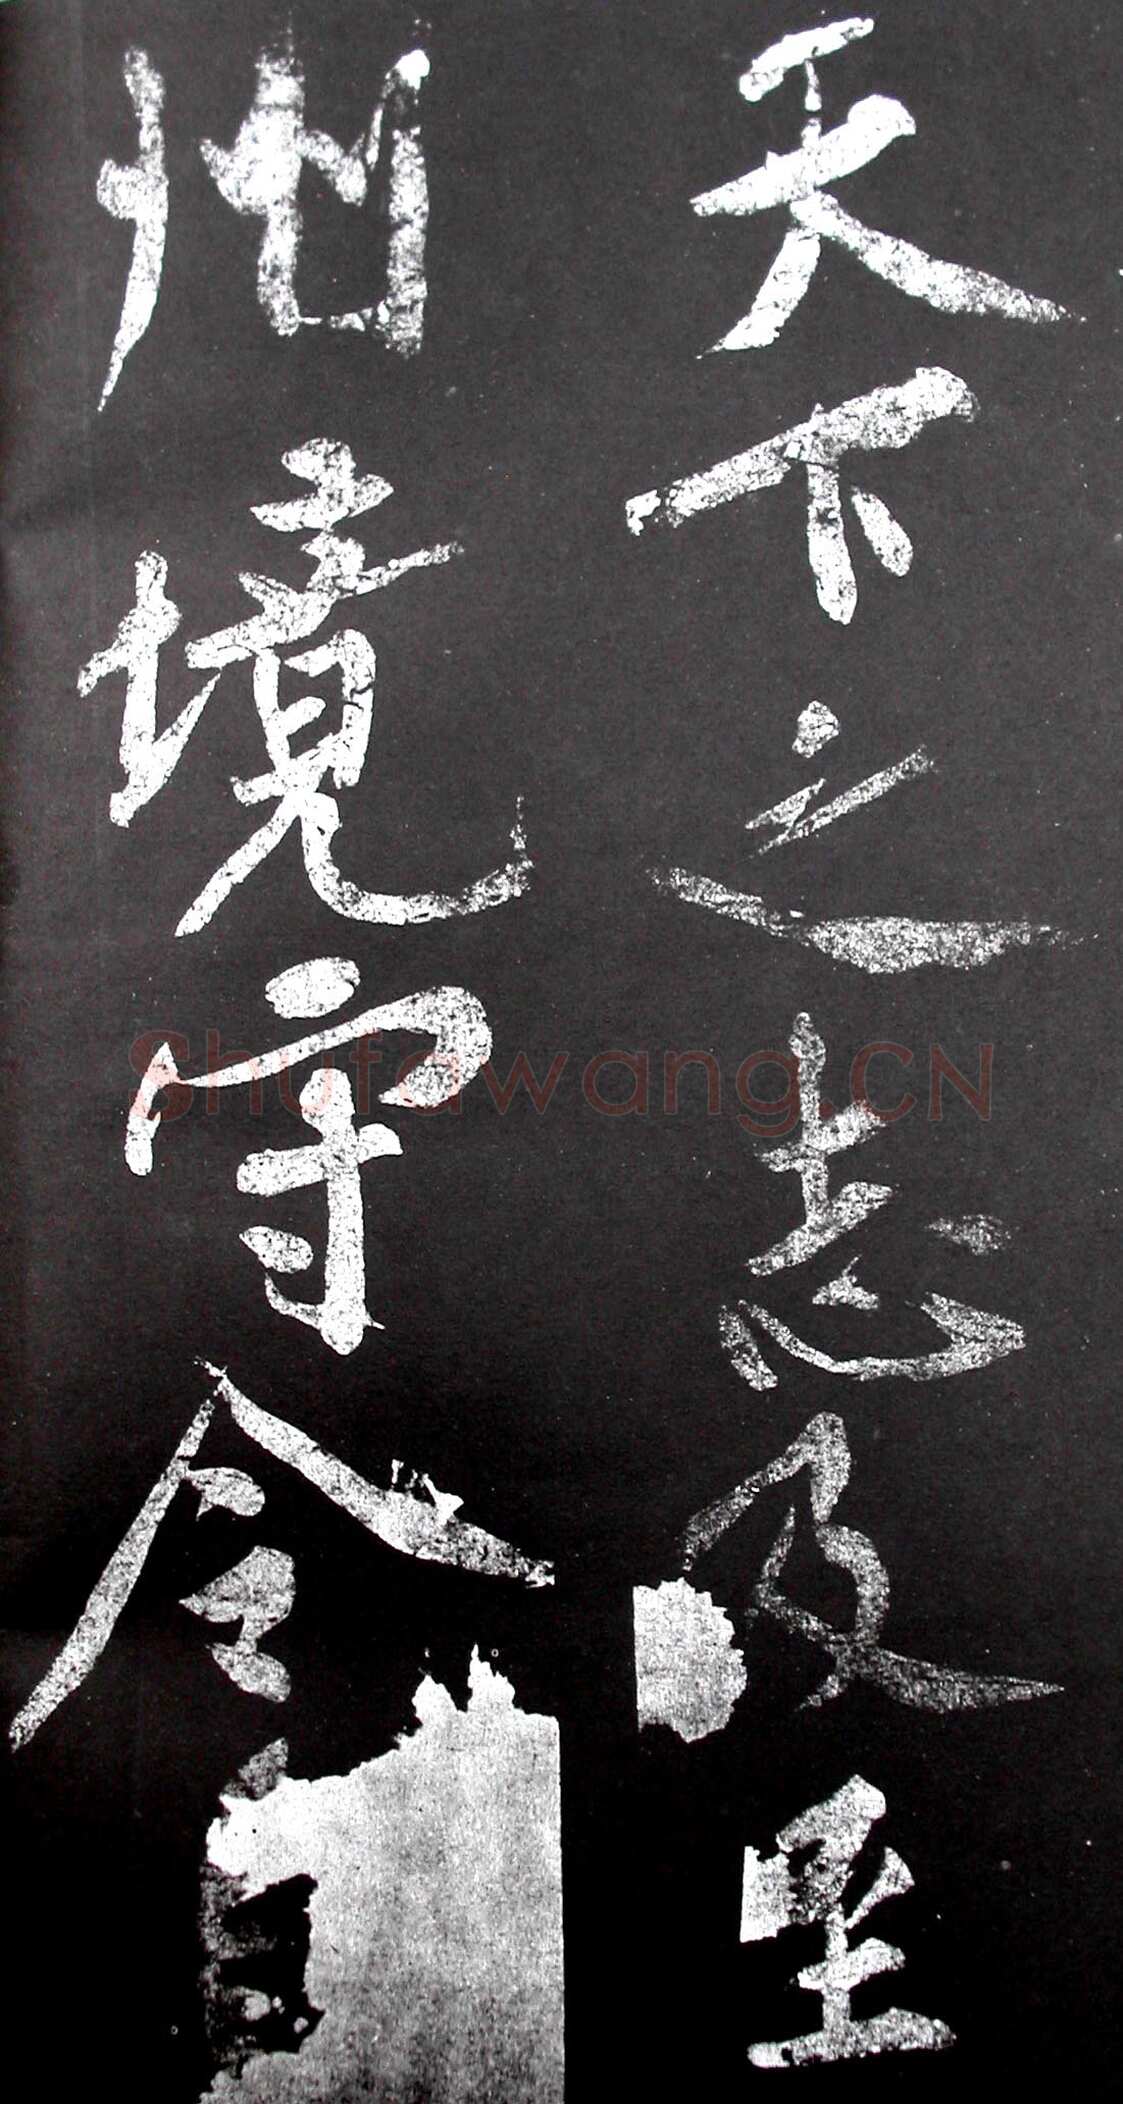 天下之志及至
州境守令
Shufawang.CN